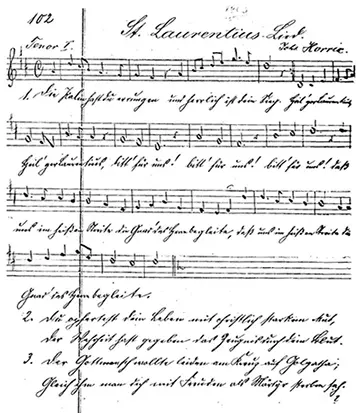 102
St. Laurentius-Lied.
Tenor I.
1. Die Palme hast du errungen und herrlich ist dein Sieg. Heil
Heil bitt' für uns! bitt' für uns! bitt' für uns! daß
uns im heißen Streite die Gnad' des Herrn begleite, daß uns im heißen Streite die
Gnad' des Herrn begleite.
2. Du opfertest dein Leben mit christlich starkem Mut,
Der Wahrheit hast gegeben das Zeugniß durch dein Blut.
3. Der Gottmensch wollte leiden am Kreuz auf Golgatha;
Gleich ihm man dich mit Freuden als Märtyr sterben sah.